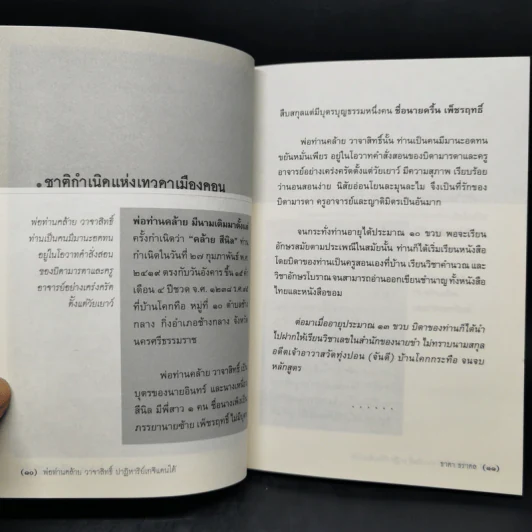 • ชาติกำเนิดแห่งเทวดาเมืองคอน
พ่อท่านคล้าย วาจาสิทธิ์
ท่านเป็นคนมีมานะอดทน
อยู่ในโอวาทคำสั่งสอน
ของบิดามารดาและครู
อาจารย์อย่างเคร่งครัด
ตั้งแต่วัยเยาว์
พ่อท่านคล้าย มีนามเดิมมาตั้งแต่
ครั้งกำเนิดว่า "คล้าย สีนิล" ท่าน
กำเนิดในวันที่ ๒๗ กุมภาพันธ์ พ.ศ.
๒๔๑๗ ตรงกับวันอังคาร ขึ้น ๑๔
เดือน ๔ ปีชวด จ.ศ.
ที่บ้านโคกทือ หมู่ที่ ๑๐ ตำบลช้าง
กลาง กิ่งอำเภอช้างกลาง จังหวัด
นครศรีธรรมราช
พ่อท่านคล้าย วาจาสิทธิ์ เป็น
บุตรของนายอินทร์ และนางเหนี่ยว
สีนิล มีพี่สาว ๑ คน ชื่อนางเพ็ง เป็น
ภรรยานายซ้าย เพ็ชรฤทธิ์ ไม่มีบุตร
(๑๐) พ่อท่านคล้าย วาจาสิทธิ์ ปาฏิหาริย์เทวดาเมืองใต้
สืบสกุลแต่มีบุตรบุญธรรมหนึ่งคน ชื่อนายครื้น เพ็ชรฤทธิ์
พ่อท่านคล้าย วาจาสิทธิ์นั้น ท่านเป็นคนมีมานะอดทน
ขยันหมั่นเพียร อยู่ในโอวาทคำสั่งสอนของบิดามารดาและครู
อาจารย์อย่างเคร่งครัดตั้งแต่วัยเยาว์ มีความสุภาพ เรียบร้อย
ว่านอนสอนง่าย นิสัยอ่อนโยนละมุนละไม จึงเป็นที่รักของ
บิดามารดา ครูอาจารย์และญาติมิตรเป็นอันมาก
จนกระทั่งท่านอายุได้ประมาณ ๑๐ ขวบ พอจะเรียน
อักษรสมัยตามประเพณีในสมัยนั้น ท่านก็ได้เริ่มเรียนหนังสือ
โดยบิดาของท่านเป็นครูสอนเองที่บ้าน เรียนวิชาคำนวณ และ
วิชาอักษรโบราณ จนสามารถอ่านออกเขียนชำนาญ ทั้งหนังสือ
ไทยและหนังสือขอม
ต่อมาเมื่ออายุประมาณ ๑๓ ขวบ บิดาของท่านก็ได้นำ
ไปฝากให้เรียนวิชาเลขในสำนักของนายขำ ไม่ทราบนามสกุล
อดีตเจ้าอาวาสวัดทุ่งปอน (จันดี) บ้านโคกกระทือ จนจบ
หลักสูตร
. . . . . .
(๑๑)